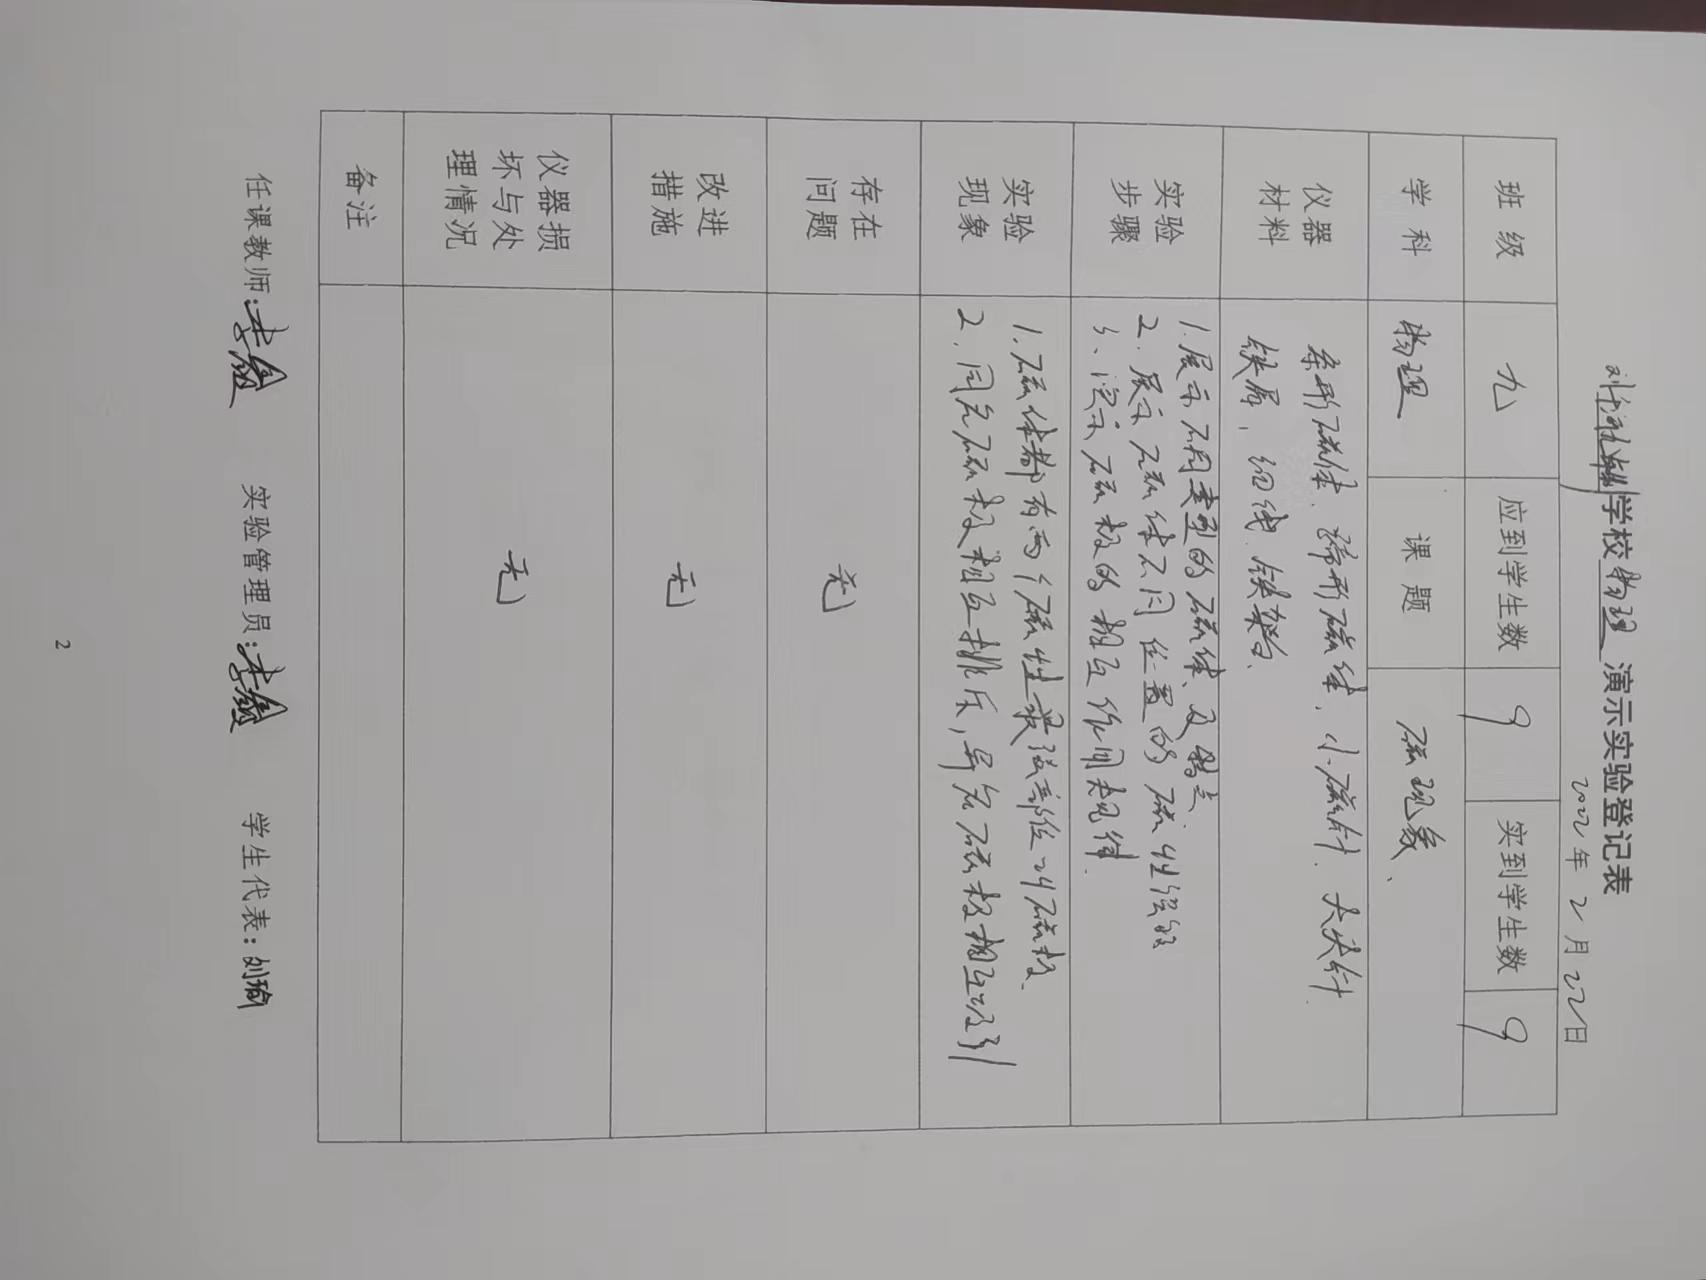 学校物理演示实验登记表
2022年2月22日
班 级 九 应到学生数 9 实到学生数 9
学 科 物理 课 题 磁现象、
仪器
材料
条形磁体、蹄形磁体、小磁针、大头针
铁屑，细线、铁架台、
实验
步骤
1.展示不同类型的磁体、及特点.
2.展示磁体不同位置的磁性强弱
3、演示磁极的相互作用规律.
实验
现象
1.磁体都有两个磁性最强部位叫磁极.
2.同名磁极相互排斥，异名磁极相互吸引
存在
问题
无
改进
措施
无
仪器损
坏与处
理情况
无
备注
任课教师: 实验管理员: 学生代表:刘瑜
2